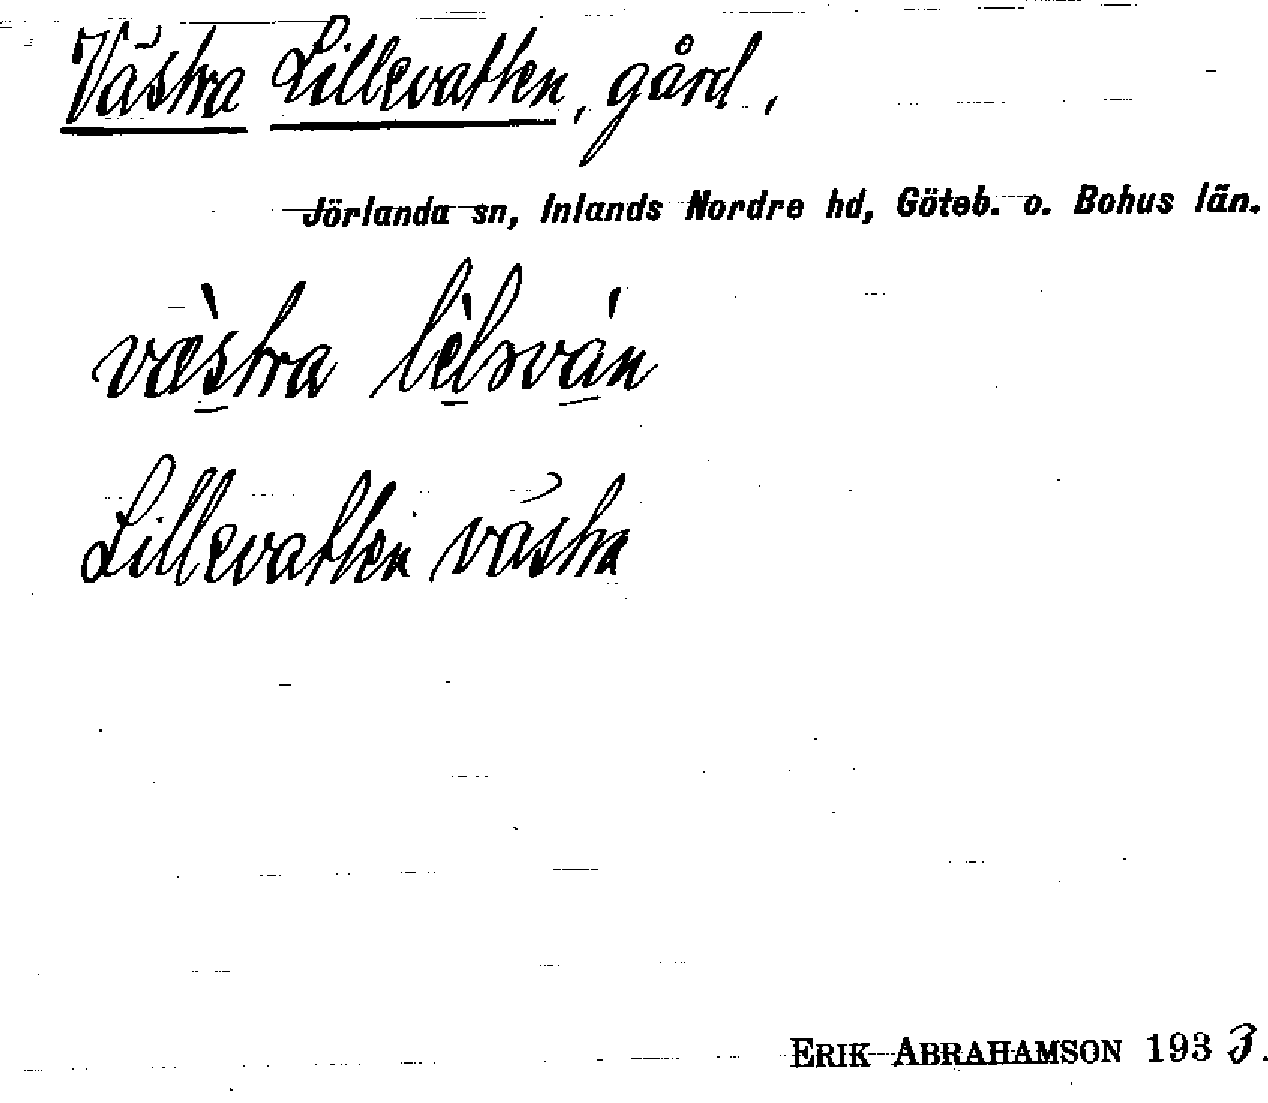 Västra Lillevatten, gård,
Jörlanda sn, Inlands Nordre hd, Göteb. o. Bohus län.
Lillevatten västra
ERIK ABRAHAMSON 1933.